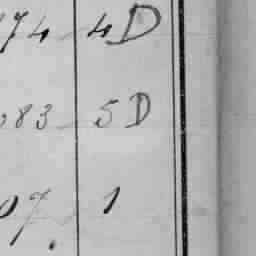 74 4D
83 5D
07. 1